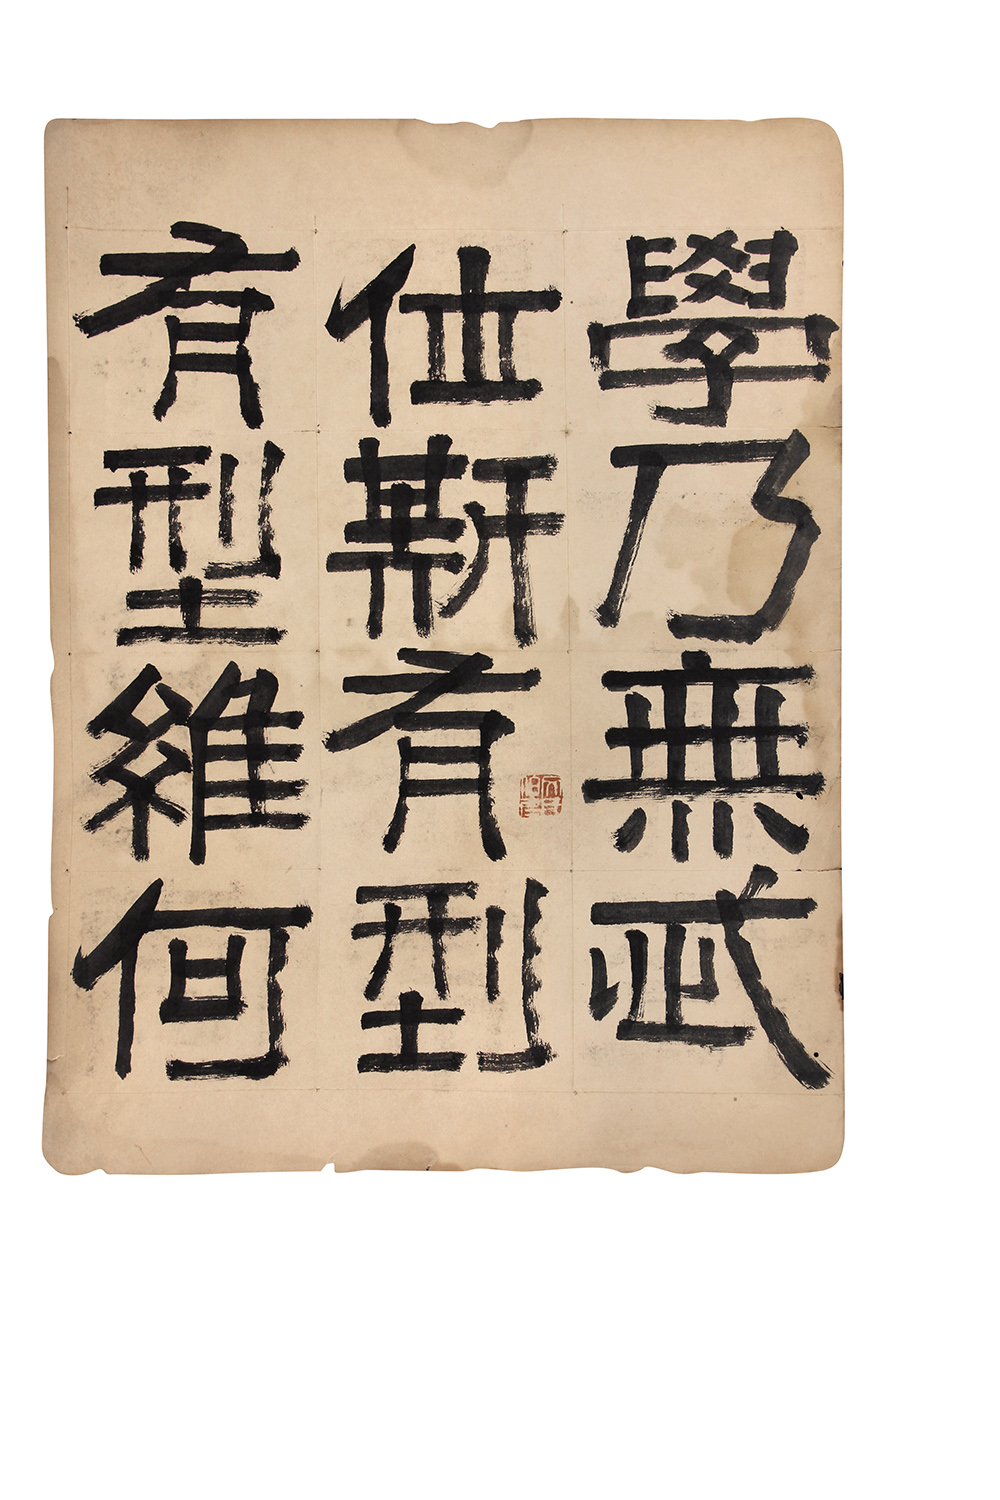 學乃無忒
位斯有型
有型維何